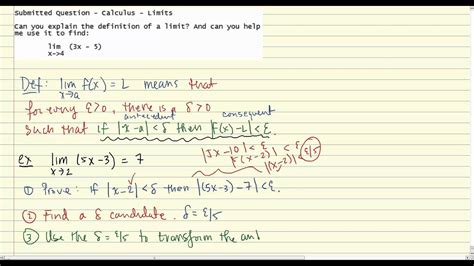 Submitted Question - Calculus - Limits
Can you explain the definition of a limit? And can you help
me use it to find:
lim (3x - 5)
x->4
Def: lim f(x) = L means that
x→a
for every ε>0, there is a δ>0
antecedent consequent
such that if |x-a|<δ then |f(x)-L|<ε.
ex lim (5x-3) = 7
x→2
|5x-10|<ε
|5(x-2)|<ε
|(x-2)|<ε/5
① Prove: if |x-2|<δ then |(5x-3)-7|<ε.
② Find a δ candidate. δ=ε/5
③ Use the δ=ε/5 to transform the ant